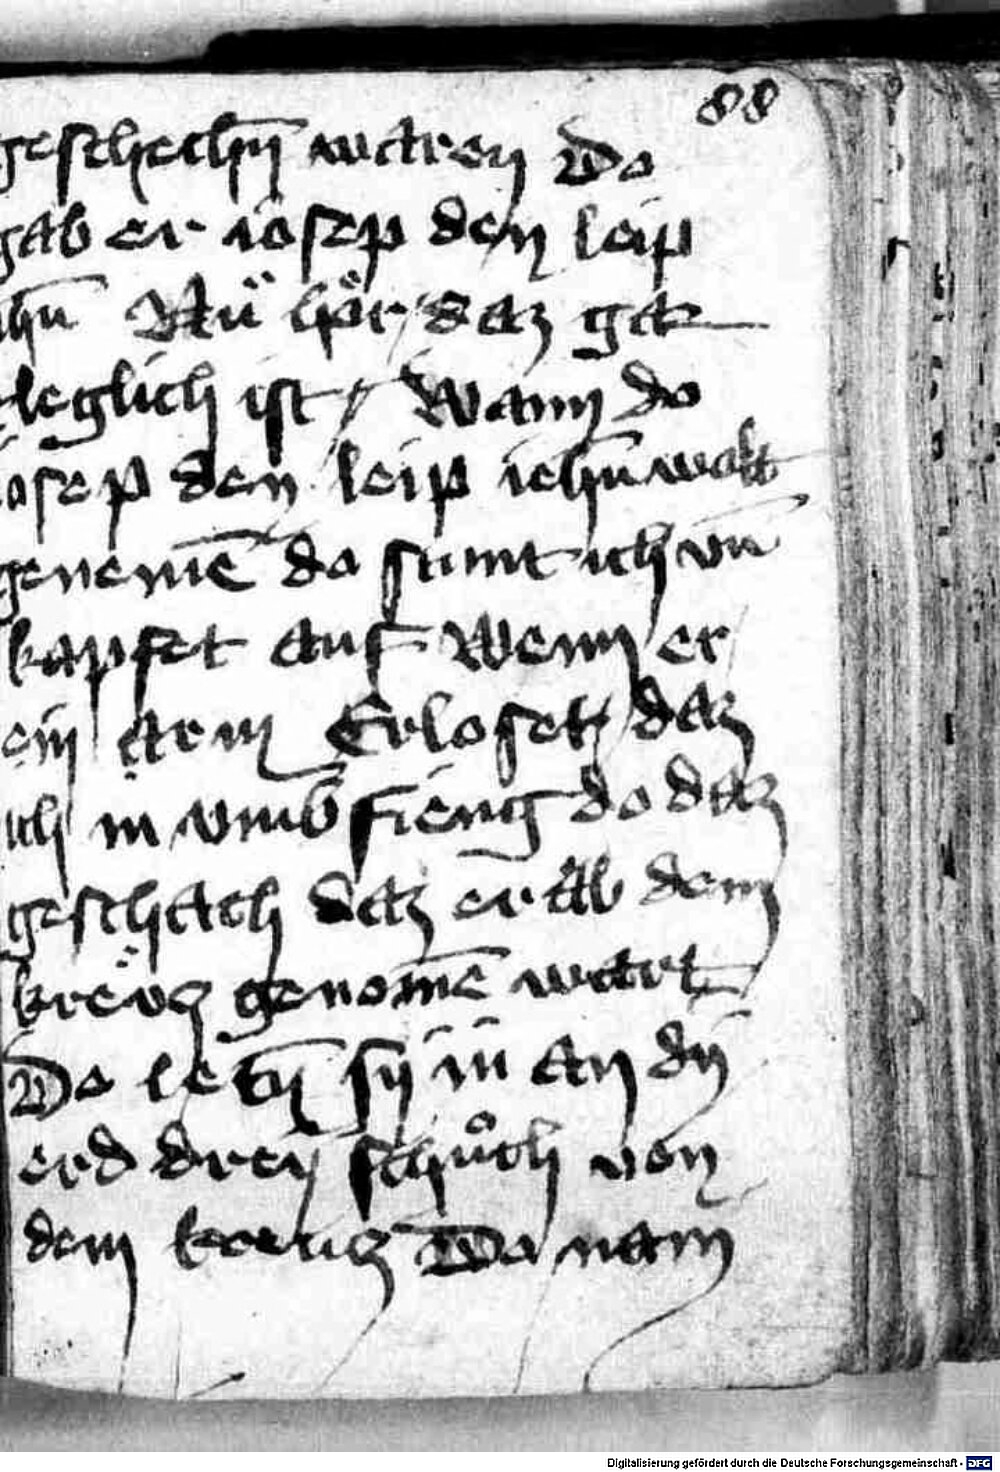 88
geschechn̄ waren Do
gab er iosep den leip
ihū Nü hör daz gar
kleglich ist / Wann do
iosep den leip iehū wolt
genemē do stunt ich vn̄
kapfet auf Wenn er
ein arm Erloset daz
ich in vmb fieng do daz
geschach daz er ab dem
kreücz genomē wart
Do letn̄ sy in an dy
erd drey schůch von
dem kreucz Do nam
Digitalisierung gefördert durch die Deutsche Forschungsgemeinschaft - DFG